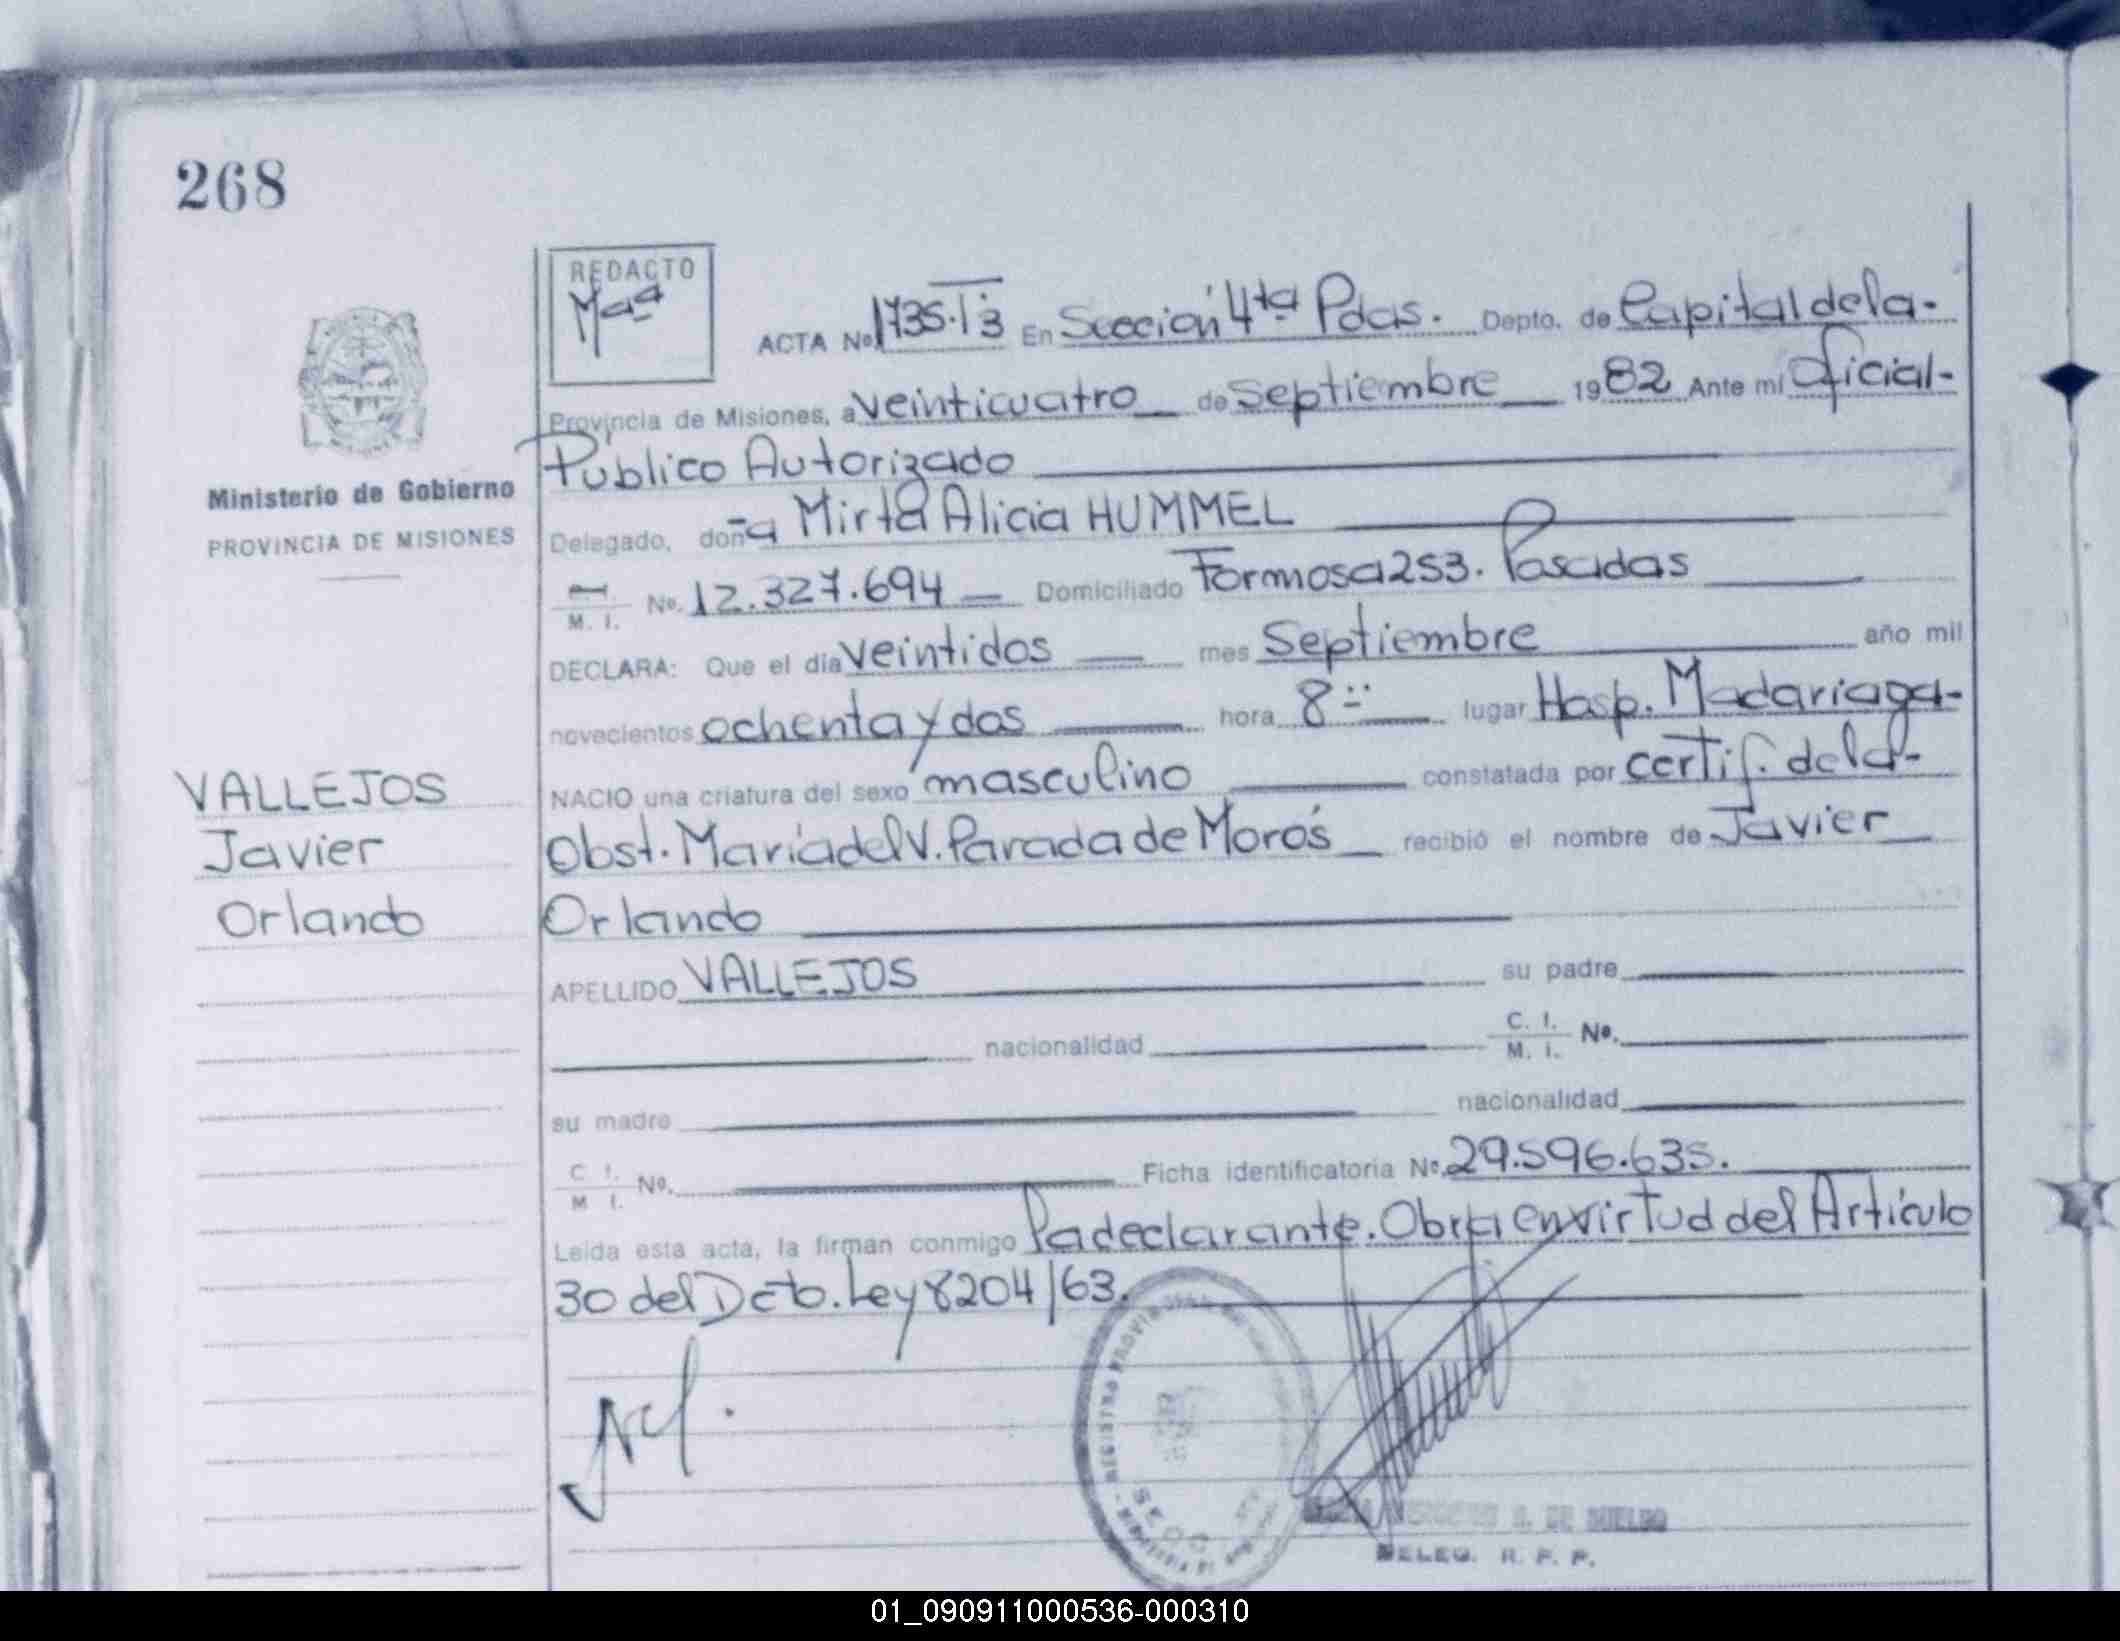 268
REDACTO
Maa
ACTA No. 1735. T 3 En Sección 4ta Pdas. Depto. de Capital de la-
Provincia de Misiones, a veinticuatro de Septiembre 1982 Ante mí Oficial-
Público Autorizado
Ministerio de Gobierno
PROVINCIA DE MISIONES
Delegado, doña Mirta Alicia HUMMEL
M. I. No. 12.327.694 Domiciliado Formosa 253. Posadas
DECLARA: Que el día veintidos mes Septiembre año mil
novecientos ochenta y dos hora 8 lugar Hosp. Madariaga-
VALLEJOS
Javier
Orlando
NACIO una criatura del sexo masculino constatada por certif. de la-
Obst. María del V. Parada de Morós recibió el nombre de Javier
Orlando
APELLIDO VALLEJOS su padre
nacionalidad C. I. M. I. No.
su madre nacionalidad
C I. M I. No. Ficha identificatoria No. 29.596.635.
Leída esta acta, la firman conmigo la declarante. Obra en virtud del Artículo
30 del Dcto. Ley 8204/63.
DELEG. R. P. P.
01_090911000536-000310